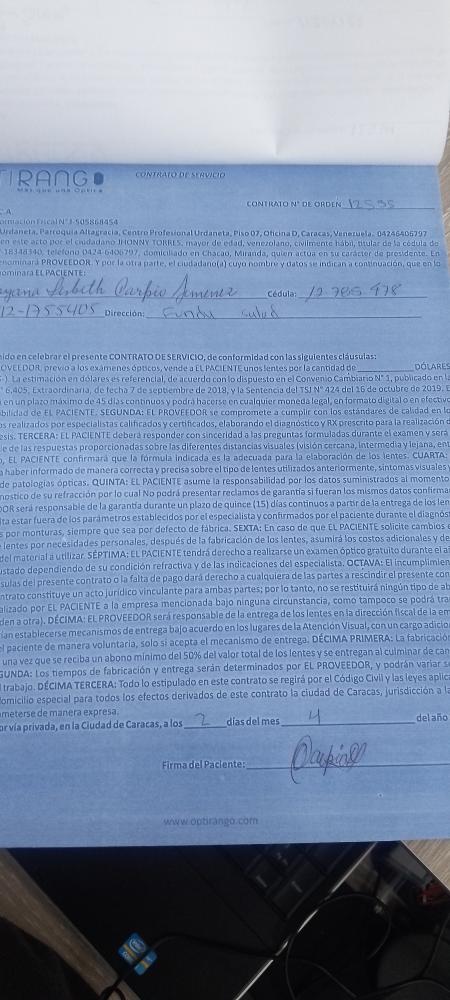 TIRANGO
Más que una Óptica
CONTRATO DE SERVICIO
CONTRATO N° DE ORDEN 12535
C.A.
ormación Fiscal N° J-505868454
Urdaneta, Parroquia Altagracia, Centro Profesional Urdaneta, Piso 07, Oficina D, Caracas, Venezuela. 04246406797
en este acto por el ciudadano JHONNY TORRES, mayor de edad, venezolano, civilmente hábil, titular de la cédula de
18348340, teléfono 0424-6406797, domiciliado en Chacao, Miranda, quien actúa en su carácter de presidente. En
enominará PROVEEDOR. Y por la otra parte, el ciudadano(a) cuyo nombre y datos se indican a continuación, que en lo
nominara EL PACIENTE:
yana Lisbeth Carpio Jimenez Cédula: 12.785.978
12-1755405 Dirección: Funda salud
nido en celebrar el presente CONTRATO DE SERVICIO, de conformidad con las siguientes cláusulas:
OVEEDOR, previo a los exámenes ópticos, vende a EL PACIENTE unos lentes por la cantidad de DÓLARES
-). La estimación en dólares es referencial, de acuerdo con lo dispuesto en el Convenio Cambiario N° 1, publicado en la
° 6.405, Extraordinaria, de fecha 7 de septiembre de 2018, y la Sentencia del TSJ N° 424 del 16 de octubre de 2019. E
en un plazo máximo de 45 días continuos y podrá hacerse en cualquier moneda legal, en formato digital o en efectivo
bilidad de EL PACIENTE. SEGUNDA: EL PROVEEDOR se compromete a cumplir con los estándares de calidad en lo
os realizados por especialistas calificados y certificados, elaborando el diagnóstico y RX prescrito para la realización d
esis. TERCERA: EL PACIENTE deberá responder con sinceridad a las preguntas formuladas durante el examen y será
e de las respuestas proporcionadas sobre las diferentes distancias visuales (visión cercana, intermedia y lejana, ent
, EL PACIENTE confirmará que la fórmula indicada es la adecuada para la elaboración de los lentes. CUARTA:
a haber informado de manera correcta y precisa sobre el tipo de lentes utilizados anteriormente, síntomas visuales y
de patologías ópticas. QUINTA: EL PACIENTE asume la responsabilidad por los datos suministrados al momento
nostico de su refracción por lo cual No podrá presentar reclamos de garantía si fueran los mismos datos confirma
DOR será responsable de la garantía durante un plazo de quince (15) días continuos a partir de la entrega de los len
lta estar fuera de los parámetros establecidos por el especialista y confirmados por el paciente durante el diagnóst
s por monturas, siempre que sea por defecto de fábrica. SEXTA: En caso de que EL PACIENTE solicite cambios e
lentes por necesidades personales, después de la fabricación de los lentes, asumirá los costos adicionales y de
del material a utilizar. SÉPTIMA: EL PACIENTE tendrá derecho a realizarse un examen óptico gratuito durante el a
ustado dependiendo de su condición refractiva y de las indicaciones del especialista. OCTAVA: El incumplimien
sulas del presente contrato o la falta de pago dará derecho a cualquiera de las partes a rescindir el presente con
ntrato constituye un acto jurídico vinculante para ambas partes; por lo tanto, no se restituirá ningún tipo de ab
alizado por EL PACIENTE a la empresa mencionada bajo ninguna circunstancia, como tampoco se podrá tra
den a otra). DÉCIMA: EL PROVEEDOR será responsable de la entrega de los lentes en la dirección fiscal de la em
rían establecerse mecanismos de entrega bajo acuerdo en los lugares de la Atención Visual, con un cargo adicio
l paciente de manera voluntaria, solo si acepta el mecanismo de entrega. DÉCIMA PRIMERA: La fabricación
una vez que se reciba un abono mínimo del 50% del valor total de los lentes y se entregan al culminar de can
GUNDA: Los tiempos de fabricación y entrega serán determinados por EL PROVEEDOR, y podrán variar s
l trabajo. DÉCIMA TERCERA: Todo lo estipulado en este contrato se regirá por el Código Civil y las leyes aplica
omicilio especial para todos los efectos derivados de este contrato la ciudad de Caracas, jurisdicción a la
meterse de manera expresa.
or vía privada, en la Ciudad de Caracas, a los 2 días del mes 4 del año
Firma del Paciente: Carpio
www.optirango.com